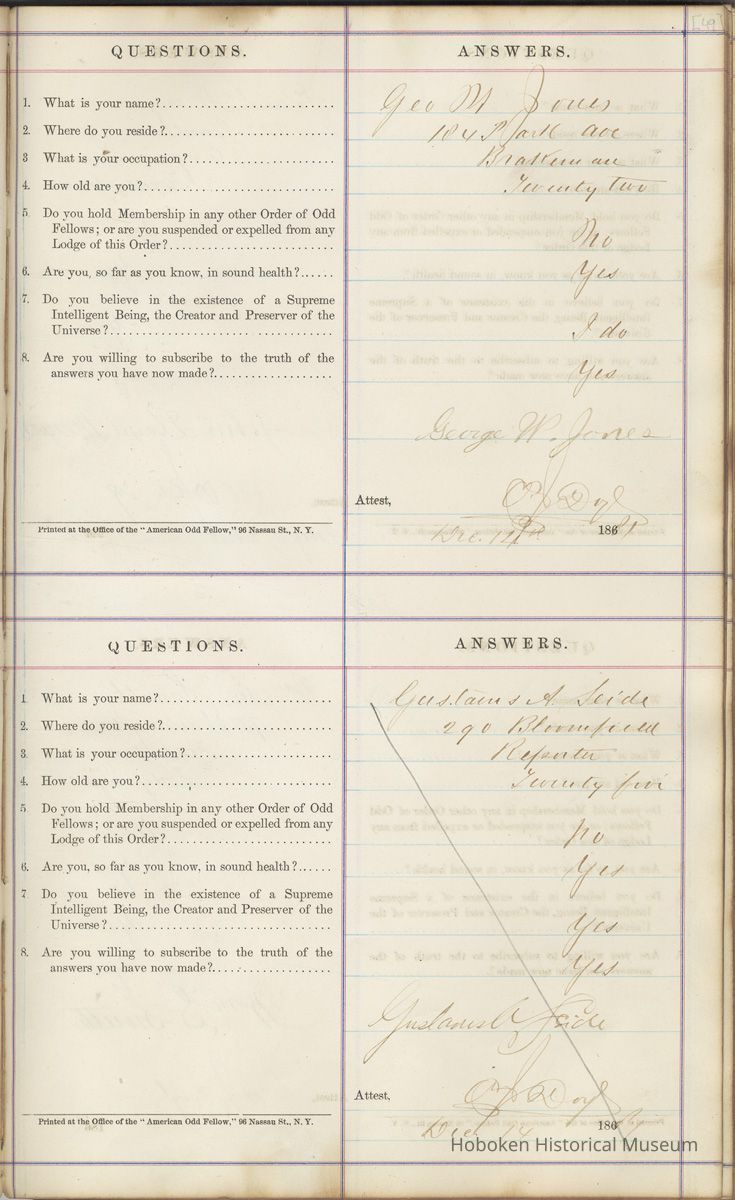 [49]
QUESTIONS.
ANSWERS.
1. What is your name?
Geo M Jones
2. Where do you reside?
184 Park ave
3 What is your occupation?
Brakeman
4. How old are you?
Twenty two
5. Do you hold Membership in any other Order of Odd
Fellows; or are you suspended or expelled from any
Lodge of this Order?
No
6. Are you, so far as you know, in sound health?
Yes
7. Do you believe in the existence of a Supreme
Intelligent Being, the Creator and Preserver of the
Universe?
I do
8. Are you willing to subscribe to the truth of the
answers you have now made?
Yes
George W. Jones
Attest,
Printed at the Office of the "American Odd Fellow," 96 Nassau St., N. Y.
Dec. 186
QUESTIONS.
ANSWERS.
1 What is your name?
Gustavus A. Seide
2. Where do you reside?
290 Bloomfield
3. What is your occupation?
Reporter
4. How old are you?
Twenty five
5 Do you hold Membership in any other Order of Odd
Fellows; or are you suspended or expelled from any
Lodge of this Order?
No
6. Are you, so far as you know, in sound health?
Yes
7 Do you believe in the existence of a Supreme
Intelligent Being, the Creator and Preserver of the
Universe?
Yes
8. Are you willing to subscribe to the truth of the
answers you have now made?
Yes
Gustavus A Seide
Attest,
Printed at the Office of the "American Odd Fellow," 96 Nassau St., N. Y.
Dec 14 186
Hoboken Historical Museum